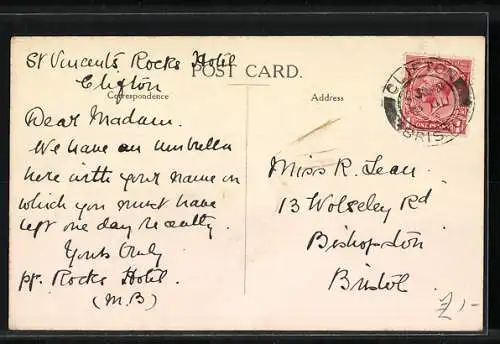 St Vincent's Rocks Hotel
Clifton
POST CARD.
Correspondence
Address
Dear Madam.
We have an umbrella
here with your name on
which you must have
left one day recently
Yours truly
pp. Rocks Hotel.
(M.B)
CLIFTON
BRIS
ONE PENNY
Miss R. Lean.
13 Wolseley Rd
Bishopston
Bristol